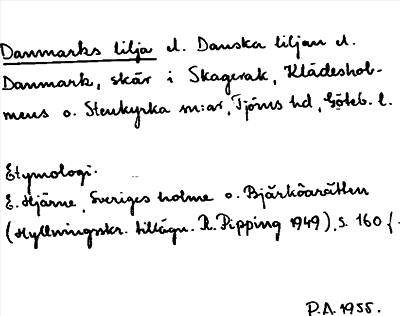 Danmarks lilja el. Danska liljan el.
Danmark, skär i Skagerak, Klädeshol-
mens o. Stenkyrka sn:ar, Tjörns hd, Göteb. l.
Etymologi.
E. Hjärne, Sveriges holme o. Bjärköarätten
(Hyllningsskr. tillägn. R. Pipping 1949), s. 160 f.
P.A. 1955.